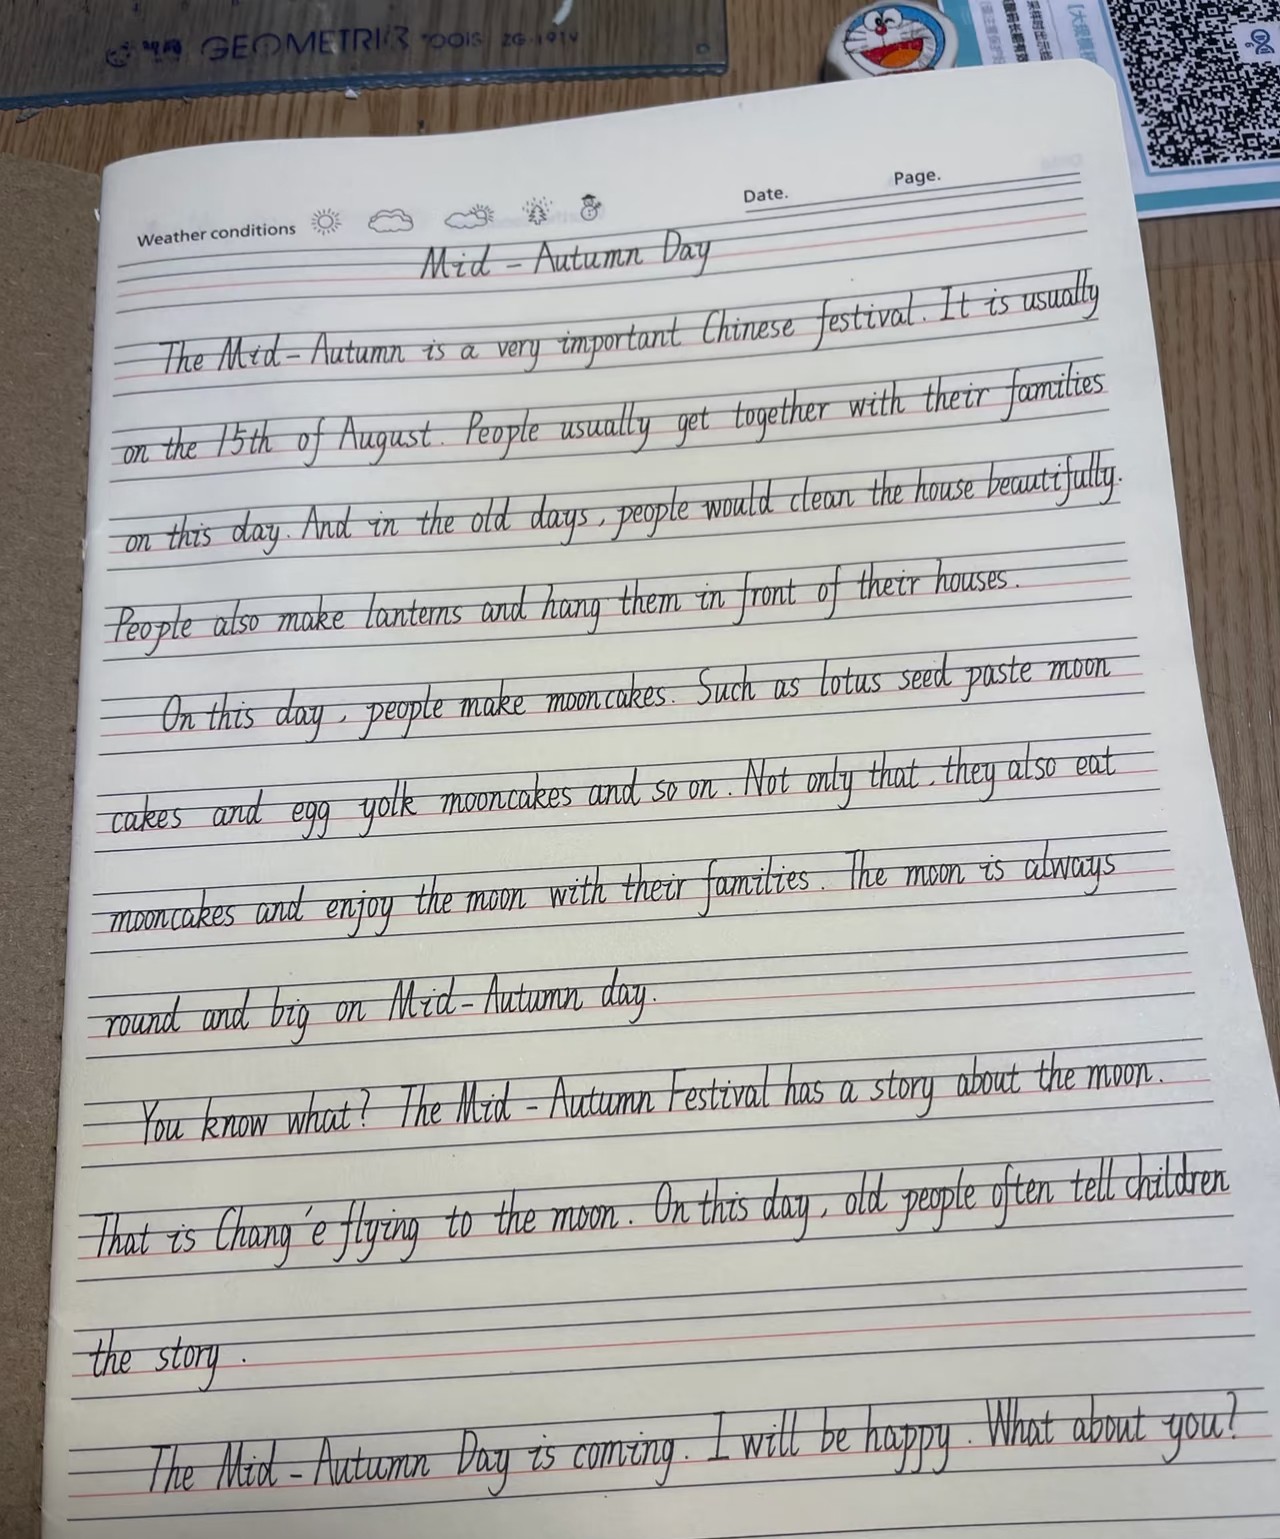 GEOMETRI
Weather conditions
Date.
Page.
Mid - Autumn Day
The Mid - Autumn is a very important Chinese festival. It is usually
on the 15th of August. People usually get together with their families
on this day. And in the old days, people would clean the house beautifully.
People also make lanterns and hang them in front of their houses.
On this day, people make mooncakes. Such as lotus seed paste moon
cakes and egg yolk mooncakes and so on. Not only that, they also eat
mooncakes and enjoy the moon with their families. The moon is always
round and big on Mid-Autumn day.
You know what? The Mid - Autumn Festival has a story about the moon.
That is Chang'e flying to the moon. On this day, old people often tell children
the story.
The Mid - Autumn Day is coming. I will be happy. What about you?